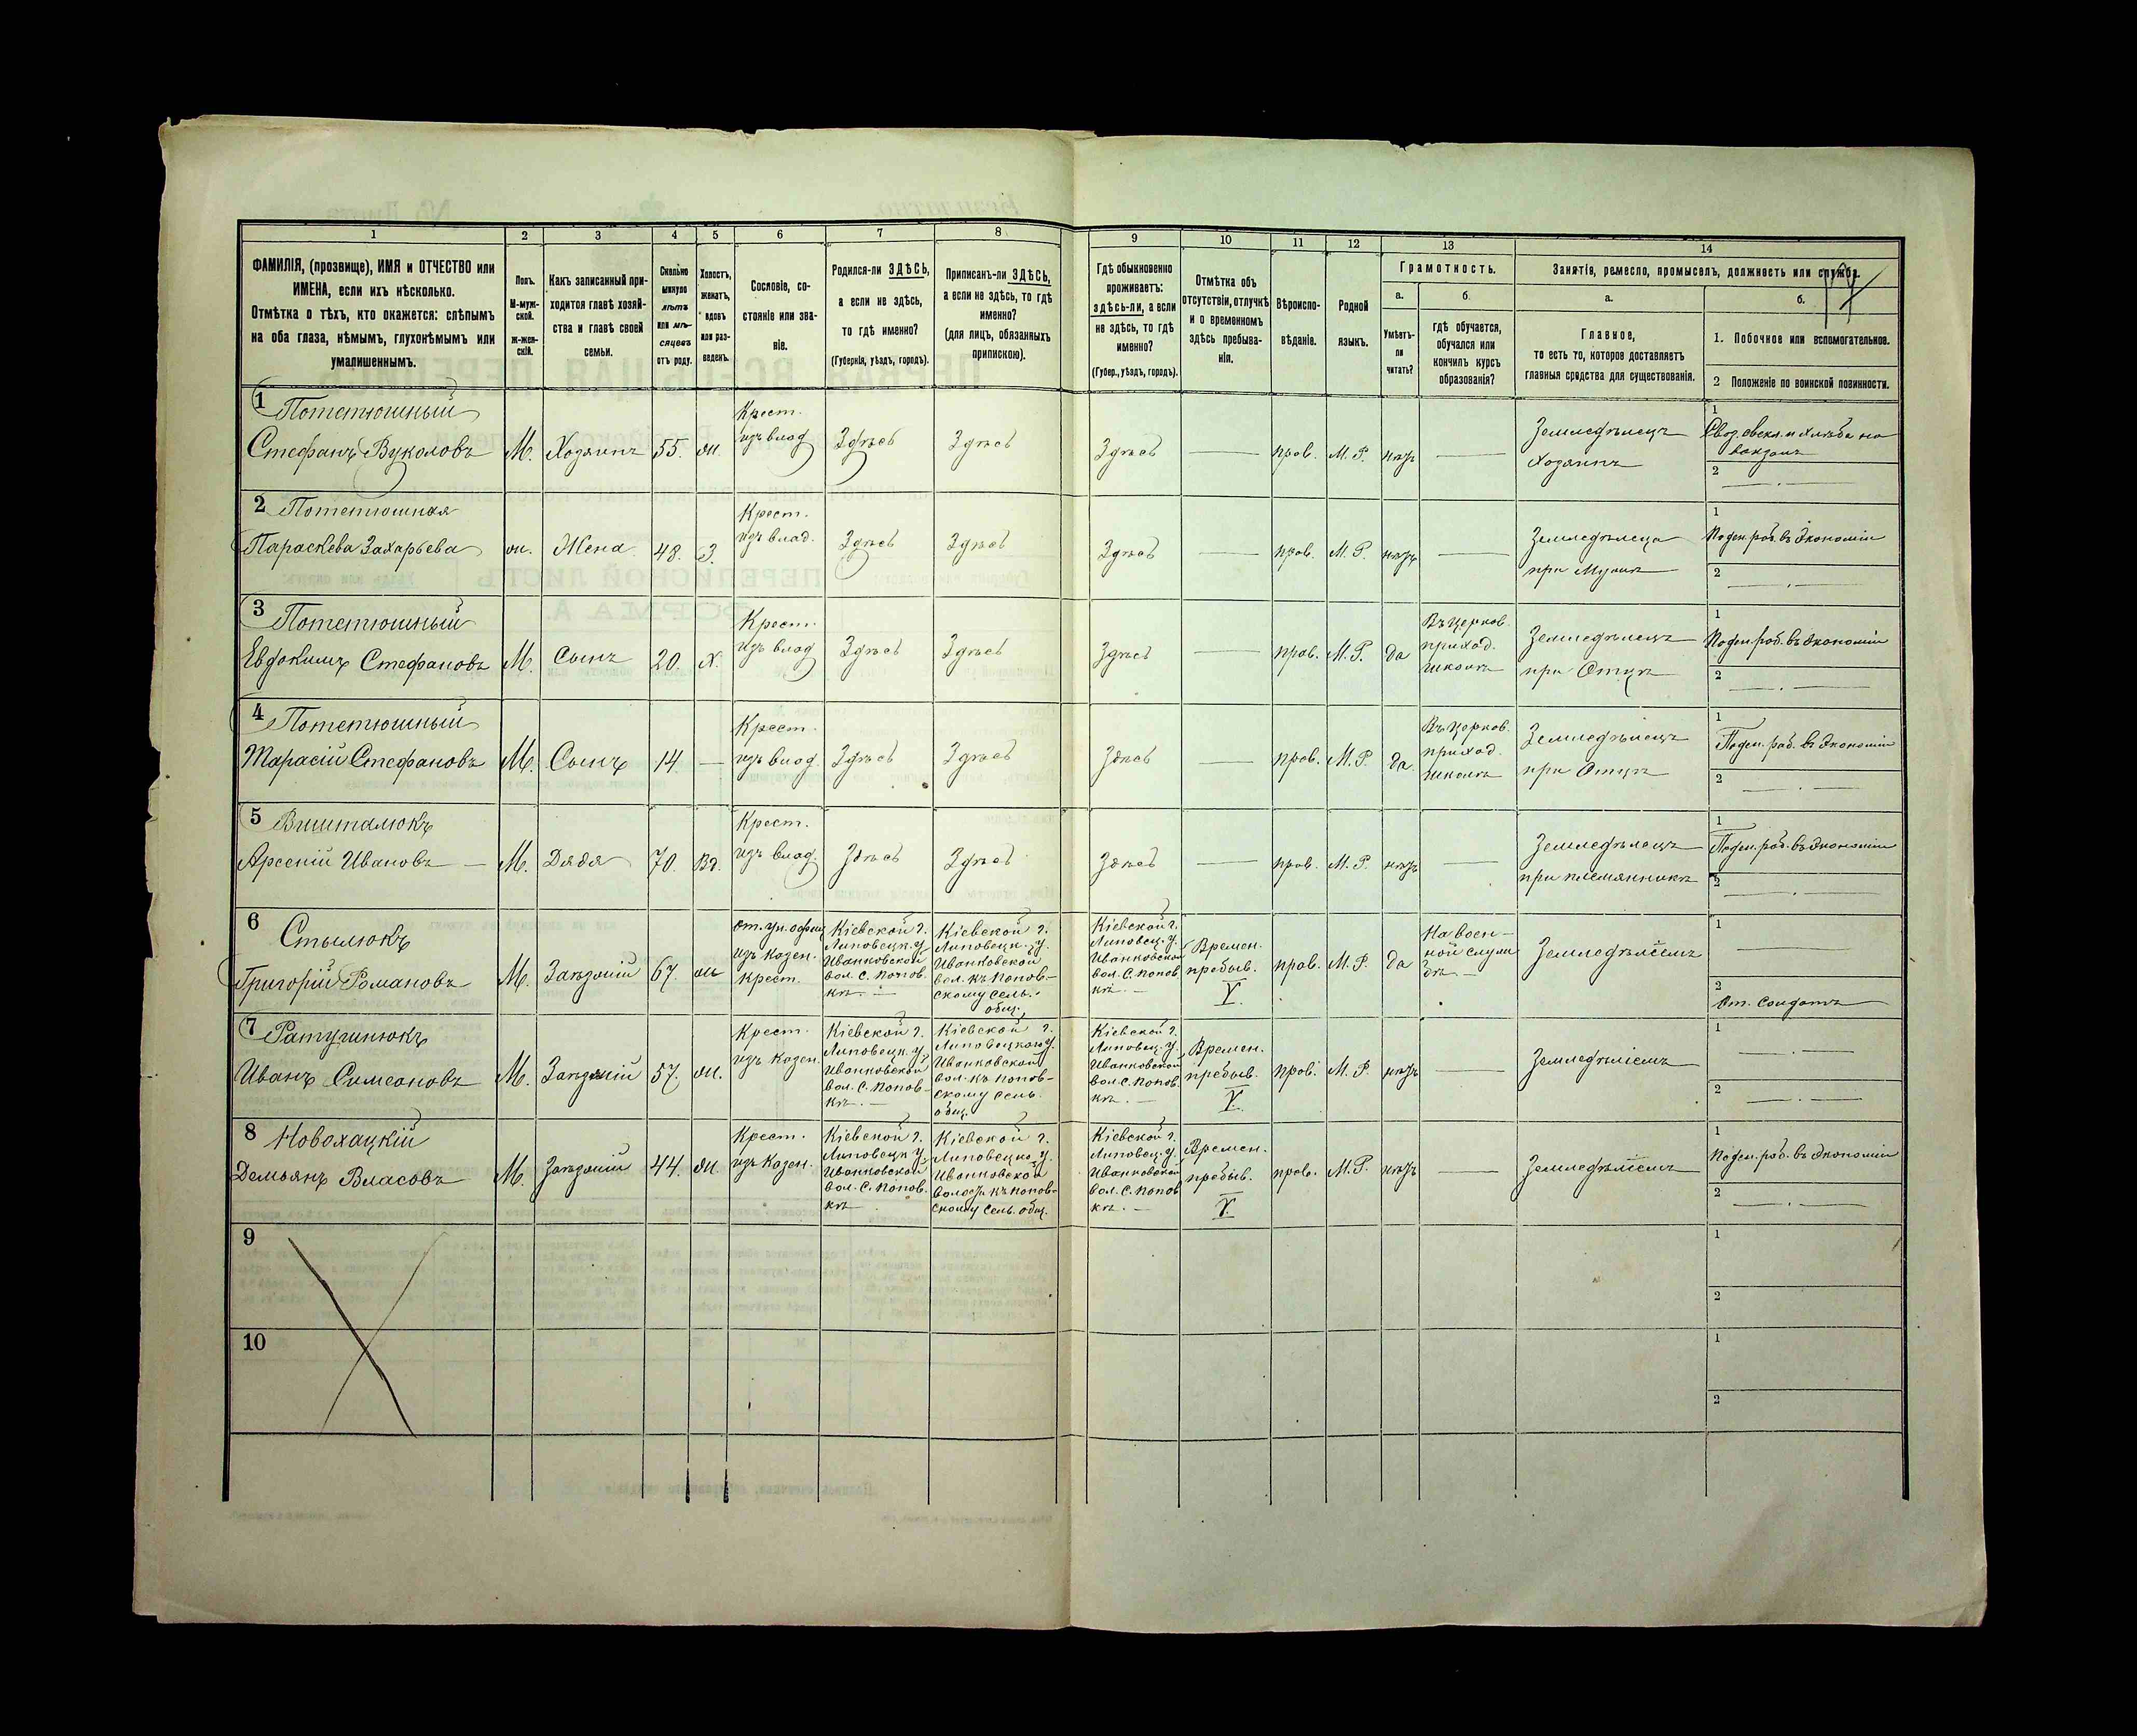 1 2 3 4 5 6 7 8 9 10 11 12 13 14
ФАМИЛІЯ, (прозвище), ИМЯ и ОТЧЕСТВО или
ИМЕНА, если ихъ нѣсколько.
Отмѣтка о тѣхъ, кто окажется: слѣпымъ
на оба глаза, нѣмымъ, глухонѣмымъ или
умалишеннымъ.
Полъ.
М-муж-
ской.
ж-жен-
скій.
Какъ записанный при-
ходится главѣ хозяй-
ства и главѣ своей
семьи.
Сколько
минуло
лѣтъ
или мѣ-
сяцевъ
отъ роду.
Холостъ,
женатъ,
вдовъ
или раз-
веденъ.
Сословіе, со-
стояніе или зва-
ніе.
Родился-ли ЗДѢСЬ,
а если не здѣсь,
то гдѣ именно?
(Губернія, уѣздъ, городъ).
Приписанъ-ли ЗДѢСЬ,
а если не здѣсь, то гдѣ
именно?
(для лицъ, обязанныхъ
припискою).
Гдѣ обыкновенно
проживаетъ:
здѣсь-ли, а если
не здѣсь, то гдѣ
именно?
(Губер., уѣздъ, городъ).
Отмѣтка объ
отсутствіи, отлучкѣ
и о временномъ
здѣсь пребыва-
ніи.
Вѣроиспо-
вѣданіе.
Родной
языкъ.
Грамотность.
а.
Умѣетъ-
ли
читать?
б.
гдѣ обучается,
обучался или
кончилъ курсъ
образованія?
Занятія, ремесло, промыселъ, должность или служба.
а.
Главное,
то есть то, которое доставляетъ
главныя средства для существованія.
б.
1. Побочное или вспомогательное.
2 Положеніе по воинской повинности.
1 Потетюшный
Стефанъ Вуколовъ
М.
Хозяинъ
55.
ж.
Крест.
изъ влад
Здѣсь
Здѣсь
Здѣсь
прав.
М. Р.
нѣтъ
Земледѣлецъ
Хозяинъ
1
свекл. и хлѣба на
вокзалъ
2
2 Потетюшная
Параскева Захарьева
ж.
Жена
48.
З.
Крест.
изъ влад.
Здѣсь
Здѣсь
Здѣсь
прав.
М. Р.
нѣтъ
Земледѣлица
при Мужѣ
1
Поден. раб. въ Экономіи
2
3 Потетюшный
Евдокимъ Стефановъ
М.
Сынъ
20.
х.
Крест.
изъ влад
Здѣсь
Здѣсь
Здѣсь
прав.
М. Р.
да
Въ церков.
приход.
школѣ
Земледѣлецъ
при Отцѣ
1
Поден. раб. въ Экономіи
2
4 Потетюшный
Тарасій Стефановъ
М.
Сынъ
14.
Крест.
изъ влад.
Здѣсь
Здѣсь
Здѣсь
прав.
М. Р.
да
Въ церков.
приход.
школѣ
Земледѣлецъ
при Отцѣ
1
Поден. раб. въ Экономіи
2
5 Вишталюкъ
Арсеній Ивановъ
М.
Дядя
70.
Вд.
Крест.
изъ влад.
Здѣсь
Здѣсь
Здѣсь
прав.
М. Р.
нѣтъ
Земледѣлецъ
при племянникѣ
1
Поден. раб. въ Экономіи
2
6 Стылюкъ
Григорій Романовъ
М.
Заѣзжій
67.
ж
от. ун. офиц
изъ казен.
крест.
Кіевской г.
Липовецк. у
Иванковской
вол. с. Попов.
кѣ.
Кіевской г.
Липовецк. у.
Иванковской
вол. къ Попов-
скому сель.
общ.
Кіевской г.
Липовец. у.
Иванковской
вол. с. Попов.
кѣ.
Времен.
пребыв.
V.
прав.
М. Р.
да
На воен-
ной служ
бѣ
Земледѣліемъ
1
2
От. Солдатъ
7 Ратушнюкъ
Иванъ Симеоновъ
М.
Заѣзжій
57.
ж.
Крест.
изъ казен.
Кіевской г.
Липовецк. у.
Иванковской
вол. с. Попов-
кѣ.
Кіевской г.
Липовецкаго у.
Иванковской
вол. къ Попов-
скому сель.
общ.
Кіевской г.
Липовец. у.
Иванковской
вол. с. Попов.
кѣ.
Времен.
пребыв.
V.
прав.
М. Р.
нѣтъ
Земледѣліемъ
1
2
8 Новохацкій
Демьянъ Власовъ
М.
Заѣзжій
44.
ж.
Крест.
изъ казен.
Кіевской г.
Липовецк у.
Иванковской
вол. с. Попов.
кѣ
Кіевской г.
Липовецко. у.
Иванковской
волост. къ Попов-
скому сель. общ.
Кіевской г.
Липовец. у.
Иванковской
вол. с. Попов
кѣ.
Времен.
пребыв.
V.
прав.
М. Р.
нѣтъ
Земледѣліемъ
1
Поден. раб. въ Экономіи
2
9
1
2
10
1
2